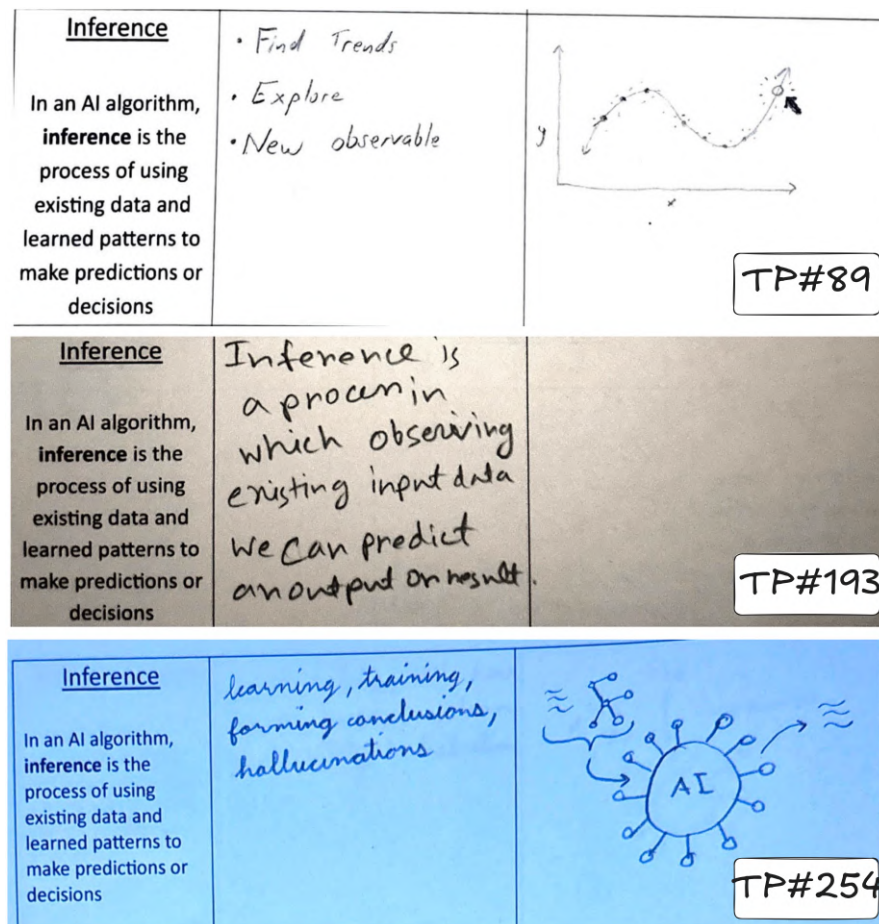 Inference
In an AI algorithm,
inference is the
process of using
existing data and
learned patterns to
make predictions or
decisions
• Find Trends
• Explore
• New observable
y
x
TP#89
Inference
In an AI algorithm,
inference is the
process of using
existing data and
learned patterns to
make predictions or
decisions
Inference is
a process in
which observing
existing input data
we can predict
an output or result.
TP#193
Inference
In an AI algorithm,
inference is the
process of using
existing data and
learned patterns to
make predictions or
decisions
learning, training,
forming conclusions,
hallucinations
AI
TP#254